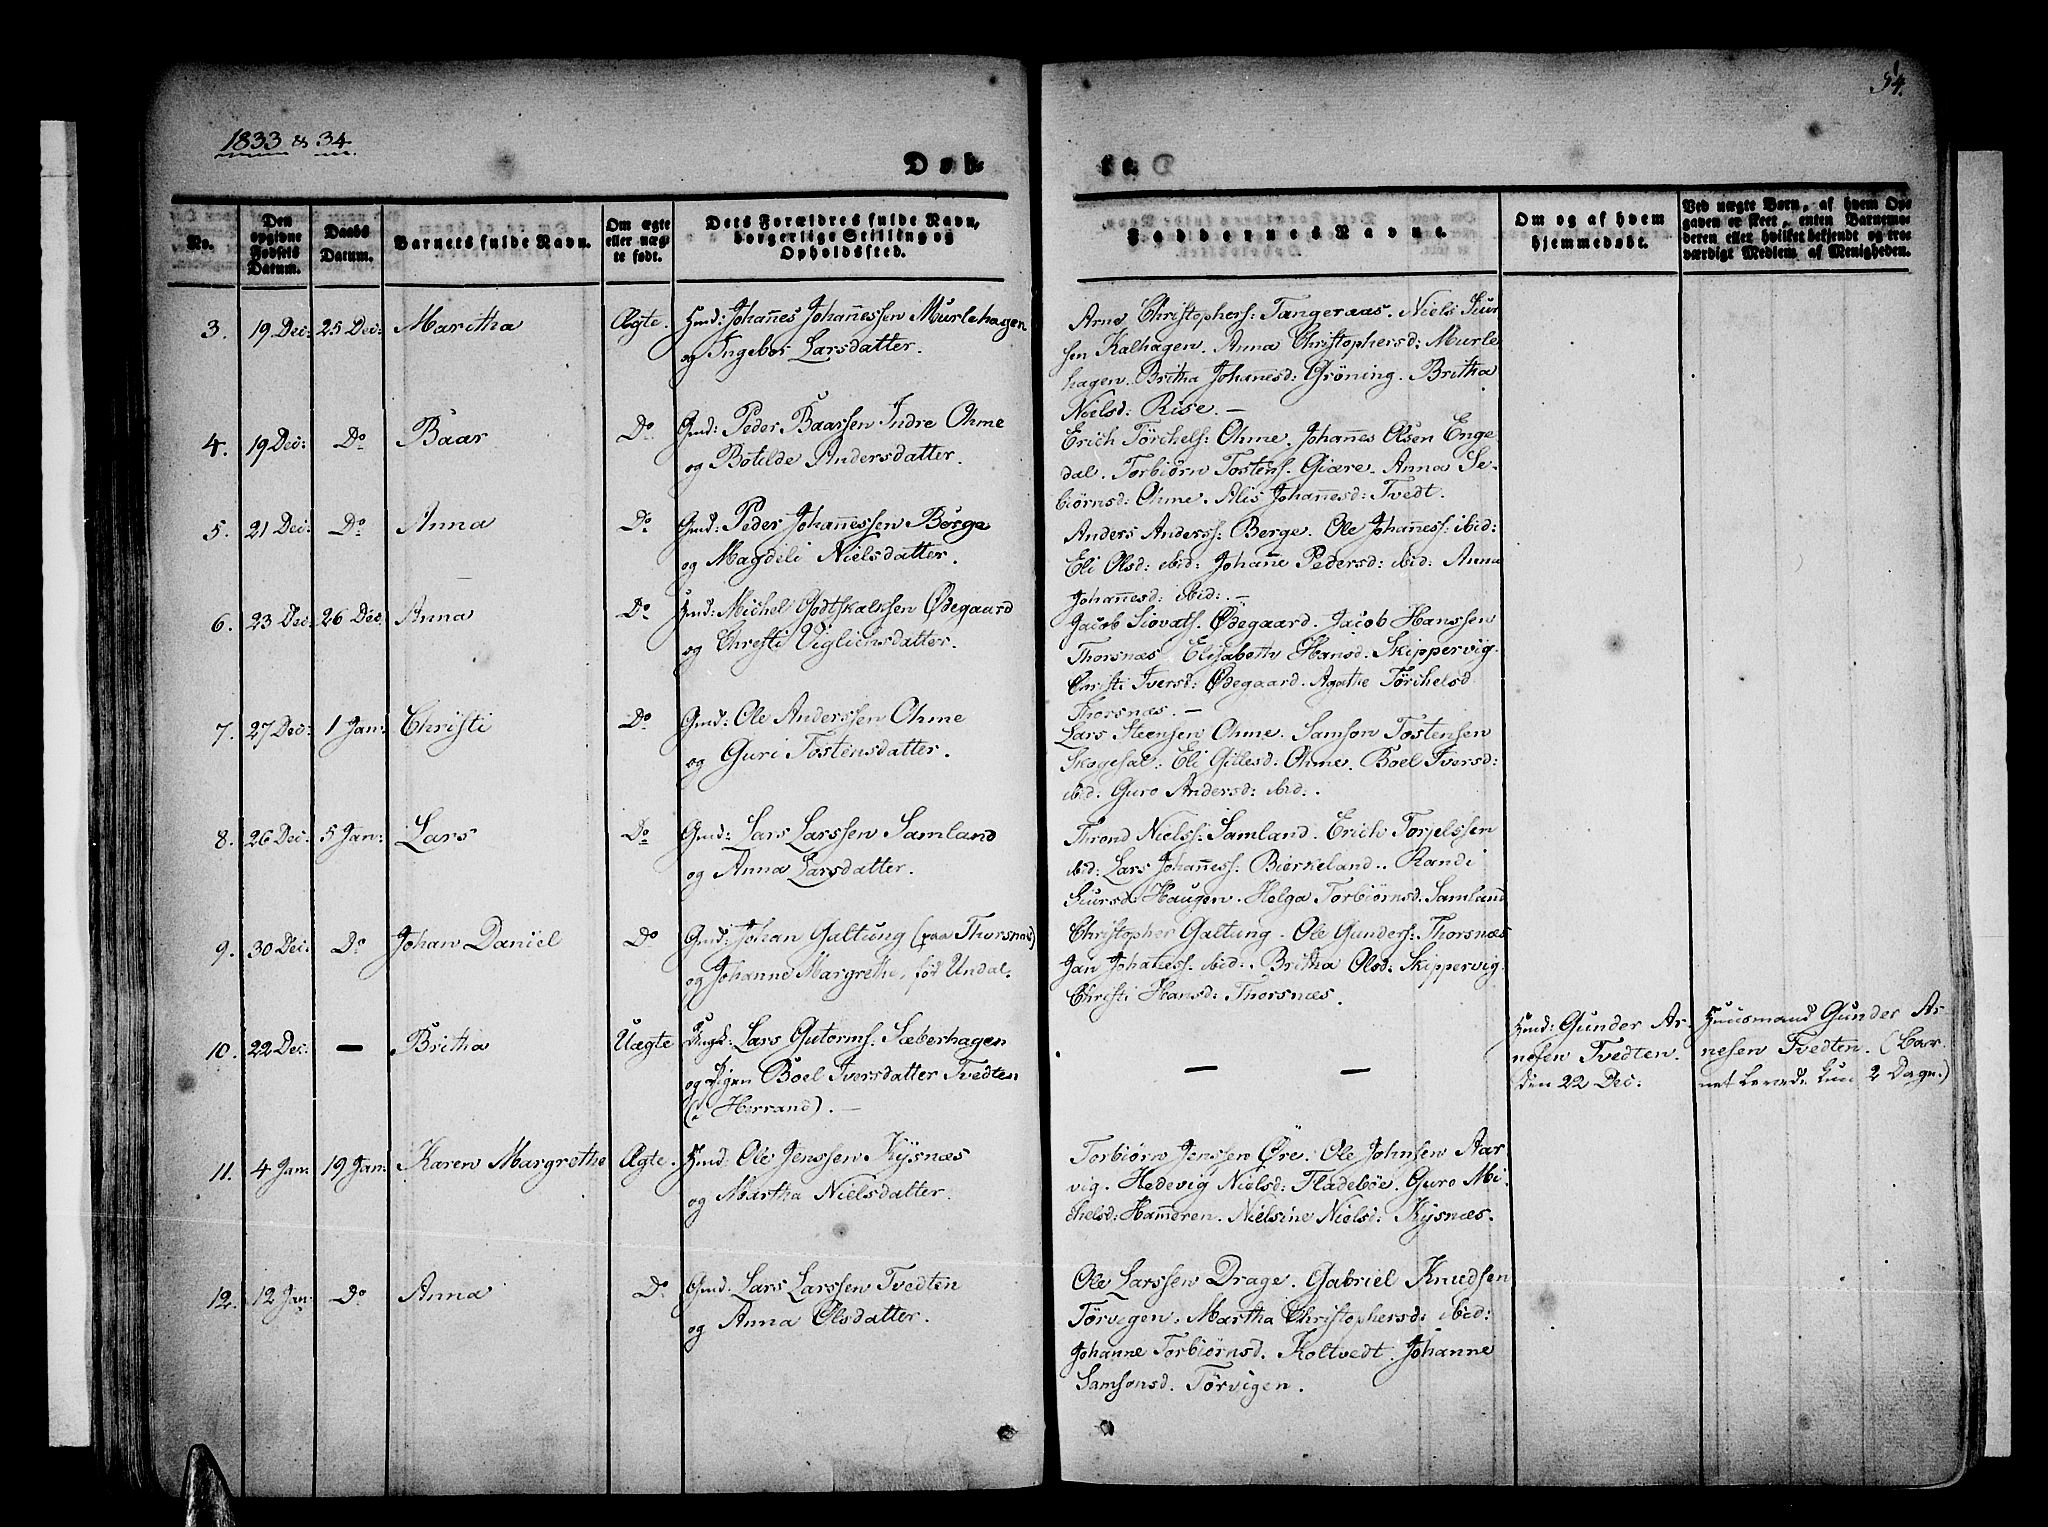 34.
1833 & 34.
Døb-
te
No.
Den opgivne Fødsels Datum.
Daabs Datum.
Barnets fulde Navn.
Om ægte eller uægte født.
Dets Forældres fulde Navn, borgerlige Stilling og Opholdssted.
Faddernes Navne.
Om og af hvem hjemmedøbt.
Ved uægte Børn, af hvem Opgaven er skeet, enten Barnemoderen eller hvilket bekjendt og troeværdigt Medlem af Menigheden.
3. 19 Dec: 25 Dec: Maritha Ægte. Hmd: Johañes Johañessen Murlehagen
og Ingebor Larsdatter.
Arne Christophers: Tangeraas. Niels Siur
sen Kalhagen. Anna Christophersd: Murle
hagen. Britha Johanesd: Grøning. Britha
Nielsd: Rise. —
4. 19 Dec: Do Baar Do Gmd: Peder Baarsen Indre Ohme
og Botilde Andersdatter.
Erich Törchels: Ohme. Johañes Olsen Enge
dal. Torbiørn Tostens. Giære. Anna Se-
biørnsd: Ohme. Alis Johañesd: Tvedt.
5. 21 Dec: Do Anna Do Gmd: Peder Johañessen Berge
og Magdeli Nielsdatter.
Anders Anderss: Berge. Ole Johañess: ibid:
Eli Olsd: ibid: Johañe Pedersd: ibid: Anna
Johañesd: ibid: . —
6. 23 Dec: 26 Dec. Anna Do Hmd: Michel Godtskalksen Ødegaard
og Christi Viglichsdatter.
Jacob Siovats. Ødegaard. Jacob Hanssen
Thorsnæs. Elisabeth Hansd. Skippervig.
Christi Iversd: Ødegaard. Agathe Törchelsd
Thorsnæs. —
7. 27 Dec: 1 Jan: Christi Do Gmd: Ole Anderssen Ohme
og Guri Tostensdatter.
Lars Steensen Ohme. Samson Tostensen
Skogesal: Eli Gillesd. Ohme. Boel Iversd:
ibid. Guro Andersd: ibid: .
8. 26 Dec: 5 Jan: Lars Do Gmd: Lars Larssen Samland
og Anna Larsdatter.
Thrond Niels: Samland. Erich Torjelssen
ibid: Lars Johañess: Bierkeland. Randi
Siursd: Haugen. Helga Torbiørnsd. Samland
9. 30 Dec: Do Johan Daniel Do Gmd: Johan Galtung (paa Thorsnæs)
og Johanne Margrethe, fød Undal.
Christopher Galtung. Ole Gunders: Thorsnæs
Jan Johañess: ibid: . Britha Olsd: Skippervig.
Christi Hansd: Thorsnæs.
10. 22 Dec: — Britha Uægte Ungk: Lars Gutorms. Sæberhagen
og Pigen Boel Iversdatter Tvedten
(i Herrand). —
— —
Hmd: Gunder Ar-
nesen Tvedten.
den 22 Dec:
Huusmand Gunder Ar-
nesen Tvedten. (Bar-
net levede kun 2 Dage.)
11. 4 Jan: 19 Jan: Karen Margrethe Ægte. Hmd: Ole Jenssen Kysnæs
og Martha Nielsdatter.
Torbiørn Jenssen Øre. Ole Johnsen Aar
vig. Hedevig Nielsd: Fladebøe. Guro Mi-
chelsd: Hameren. Nielsine Nielsd: Kysnæs.
12. 12 Jan: Do Anna Do Gmd: Lars Larssen Tvedten
og Anna Olsdatter.
Ole Larssen Drage. Gabriel Knudsen
Törvigen. Martha Christophersd: ibid:
Johanne Torbiörnsd. Koltvedt. Johanne
Samsonsd. Törvigen.